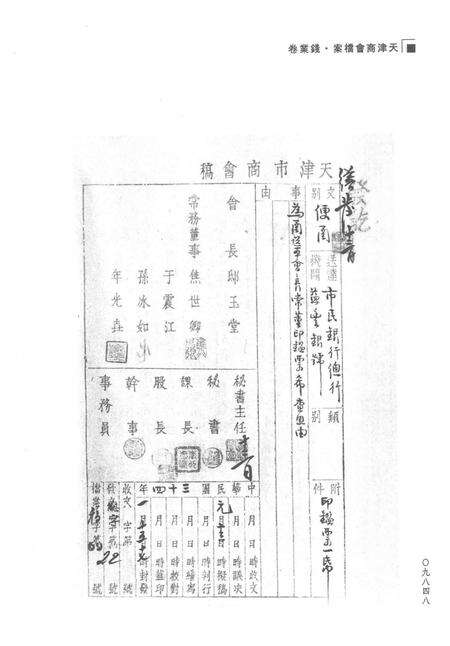 天津商會檔案·錢業卷
天津市商會稿
文別
便函
送達機關
市民銀行總行
益豐銀號
類別
附件
印鑑票一席
事由
為函送本會會長常董印鑑票希查照由
會長邸玉堂
常務董事焦世卿
于震江
孫冰如
年光垚
秘書主任
秘書
課長
股長
幹事
事務員
中華民國三十四年
月日時收文
月日時議決
元月十三日時擬稿
月日時判行
月日時繕寫
月日時校對
月日時蓋印
一月十五日時封發
收文字第號
發文字第22號
檔案字第號
〇九八四八